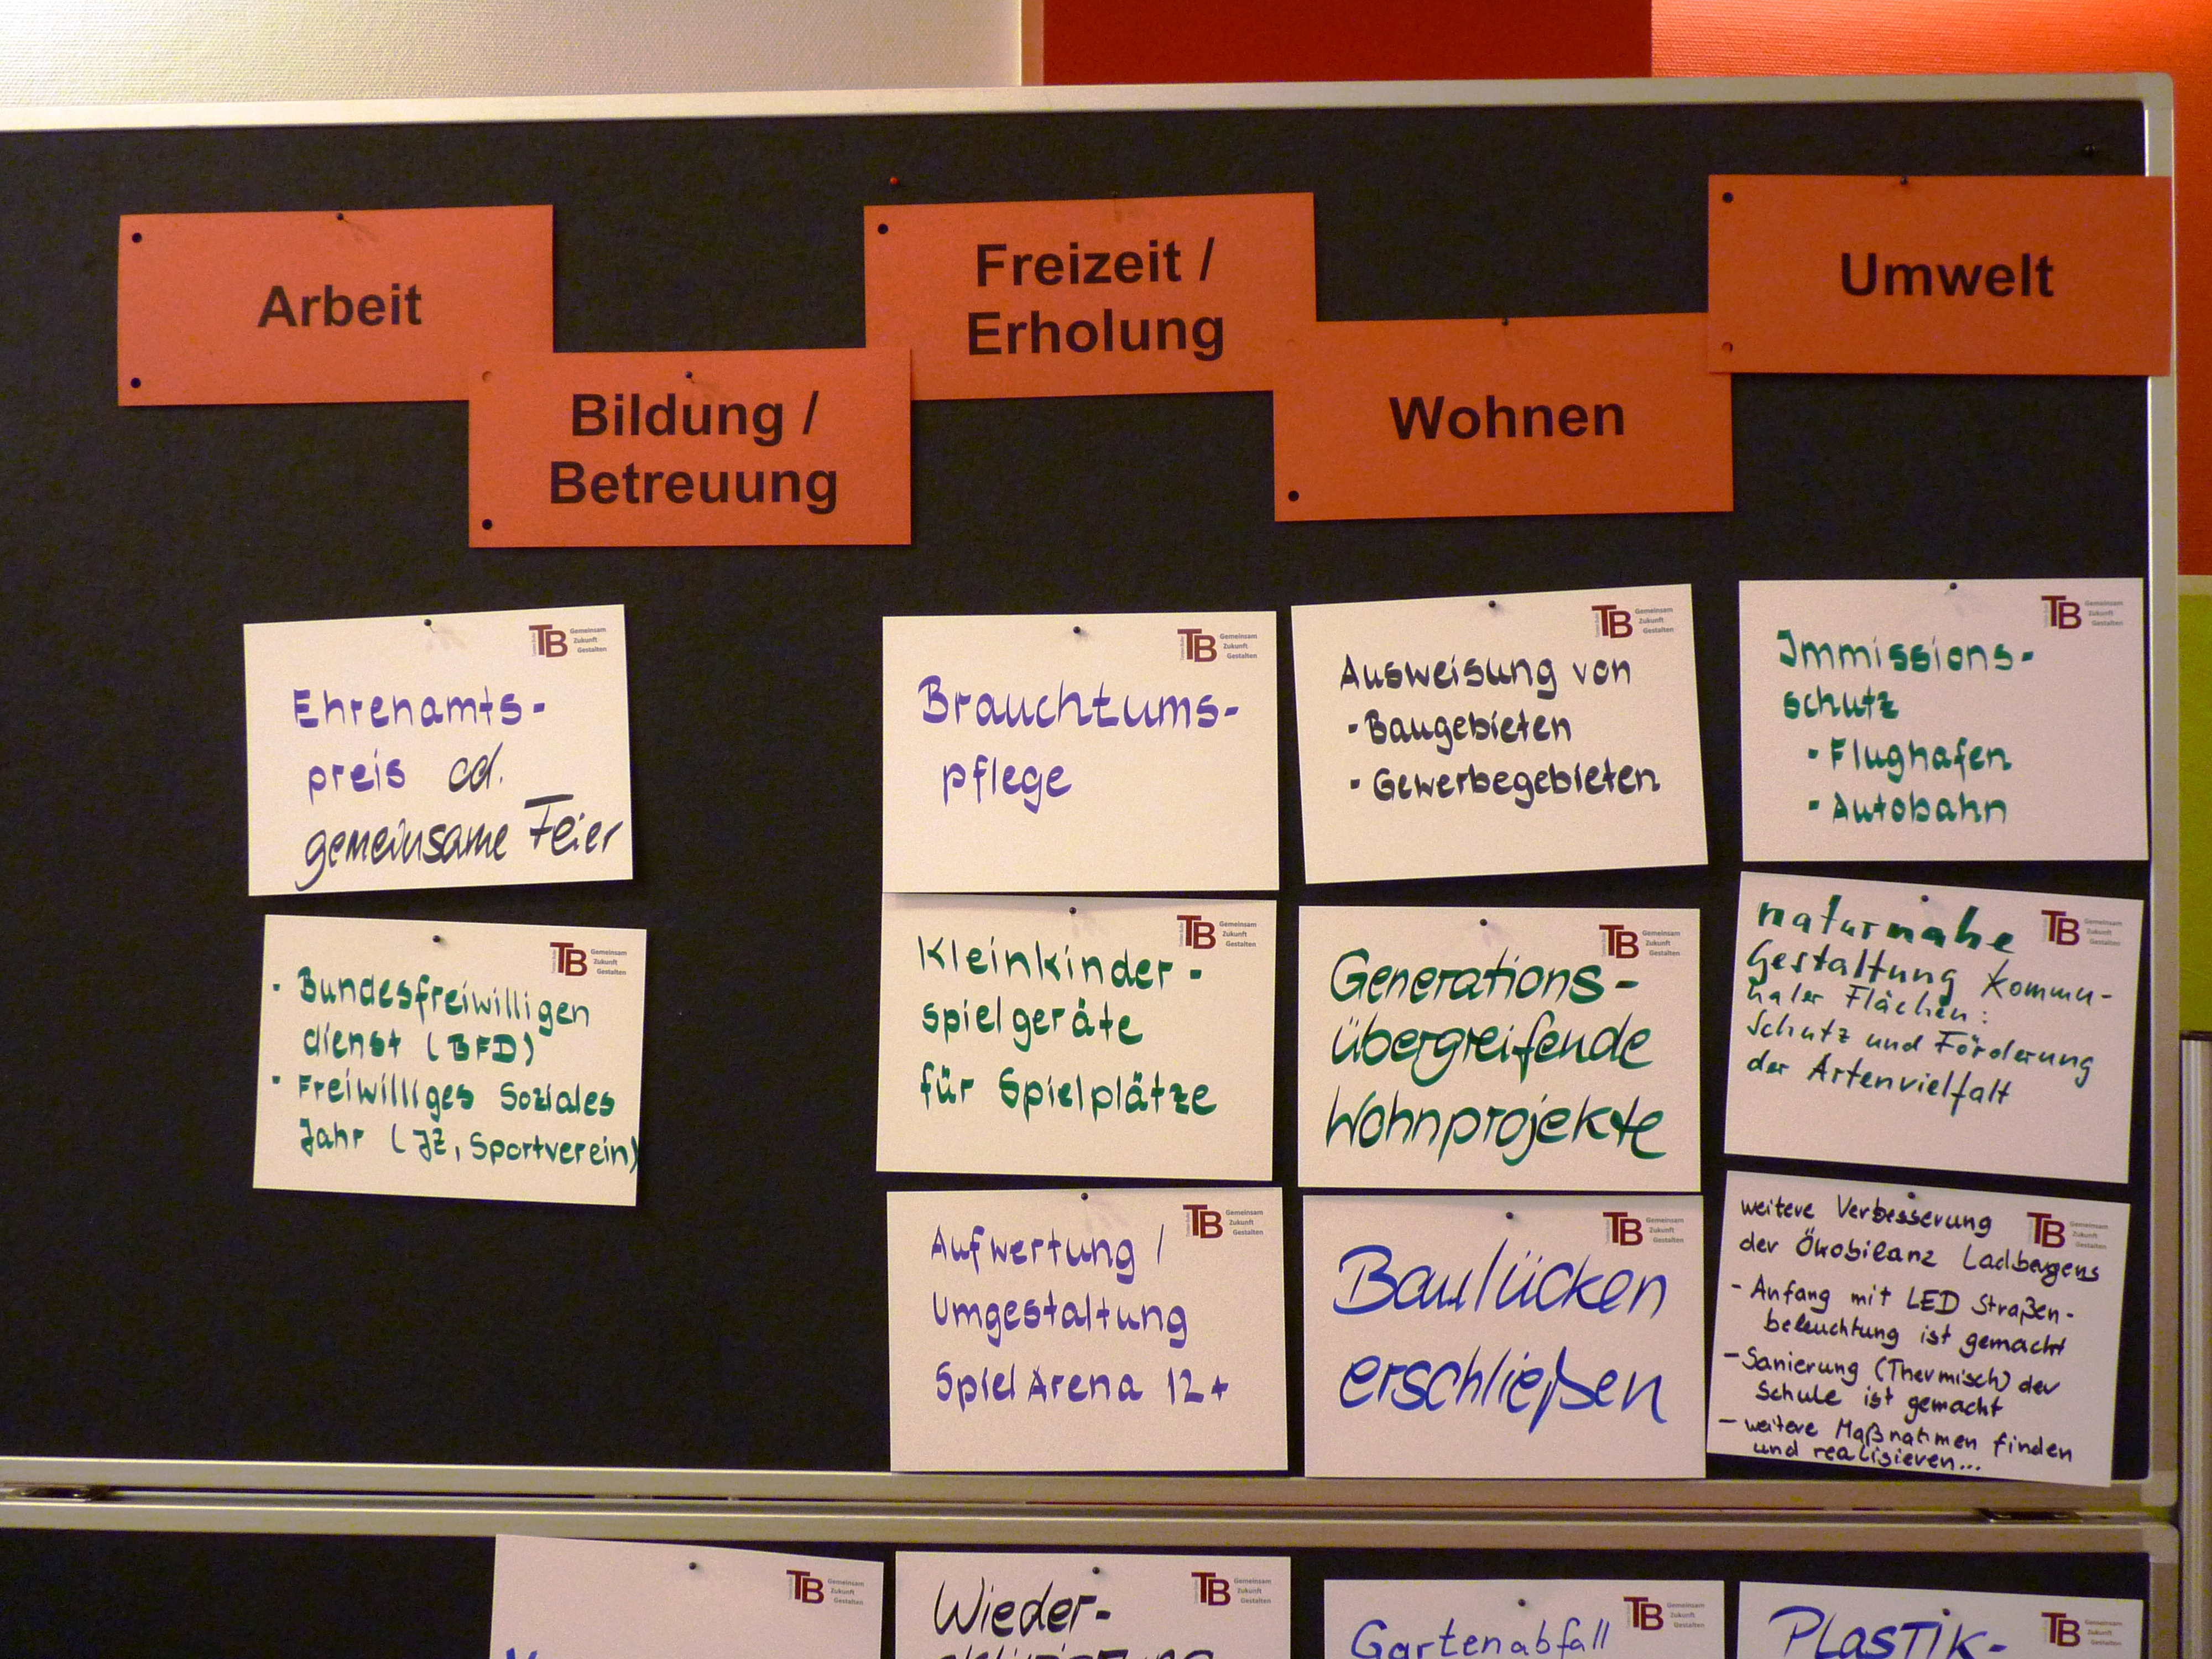 Arbeit
Bildung /
Betreuung
Freizeit /
Erholung
Wohnen
Umwelt
TB Gemeinsam
Zukunft
Gestalten
Ehrenamts-
preis od.
gemeinsame Feier
TB Gemeinsam
Zukunft
Gestalten
· Bundesfreiwilligen
dienst (BFD)
· Freiwilliges Soziales
Jahr (JZ, Sportverein)
TB Gemeinsam
Zukunft
Gestalten
Brauchtums-
pflege
TB Gemeinsam
Zukunft
Gestalten
Kleinkinder-
spielgeräte
für Spielplätze
TB Gemeinsam
Zukunft
Gestalten
Aufwertung /
Umgestaltung
Spiel Arena 12+
TB Gemeinsam
Zukunft
Gestalten
Ausweisung von
- Baugebieten
- Gewerbegebieten
TB Gemeinsam
Zukunft
Gestalten
Generations-
übergreifende
Wohnprojekte
TB Gemeinsam
Zukunft
Gestalten
Baulücken
erschließen
TB Gemeinsam
Zukunft
Gestalten
Immissions-
schutz
- Flughafen
- Autobahn
TB Gemeinsam
Zukunft
Gestalten
naturnahe
Gestaltung Kommu-
naler Flächen:
Schutz und Förderung
der Artenvielfalt
TB Gemeinsam
Zukunft
Gestalten
weitere Verbesserung
der Ökobilanz Ladbergens
- Anfang mit LED Straßen-
beleuchtung ist gemacht
- Sanierung (Thermisch) der
Schule ist gemacht
- weitere Maßnahmen finden
und realisieren...
TB Gemeinsam
Zukunft
Gestalten
TB Gemeinsam
Zukunft
Gestalten
Wieder-
TB Gemeinsam
Zukunft
Gestalten
Gartenabfall
TB Gemeinsam
Zukunft
Gestalten
Plastik-